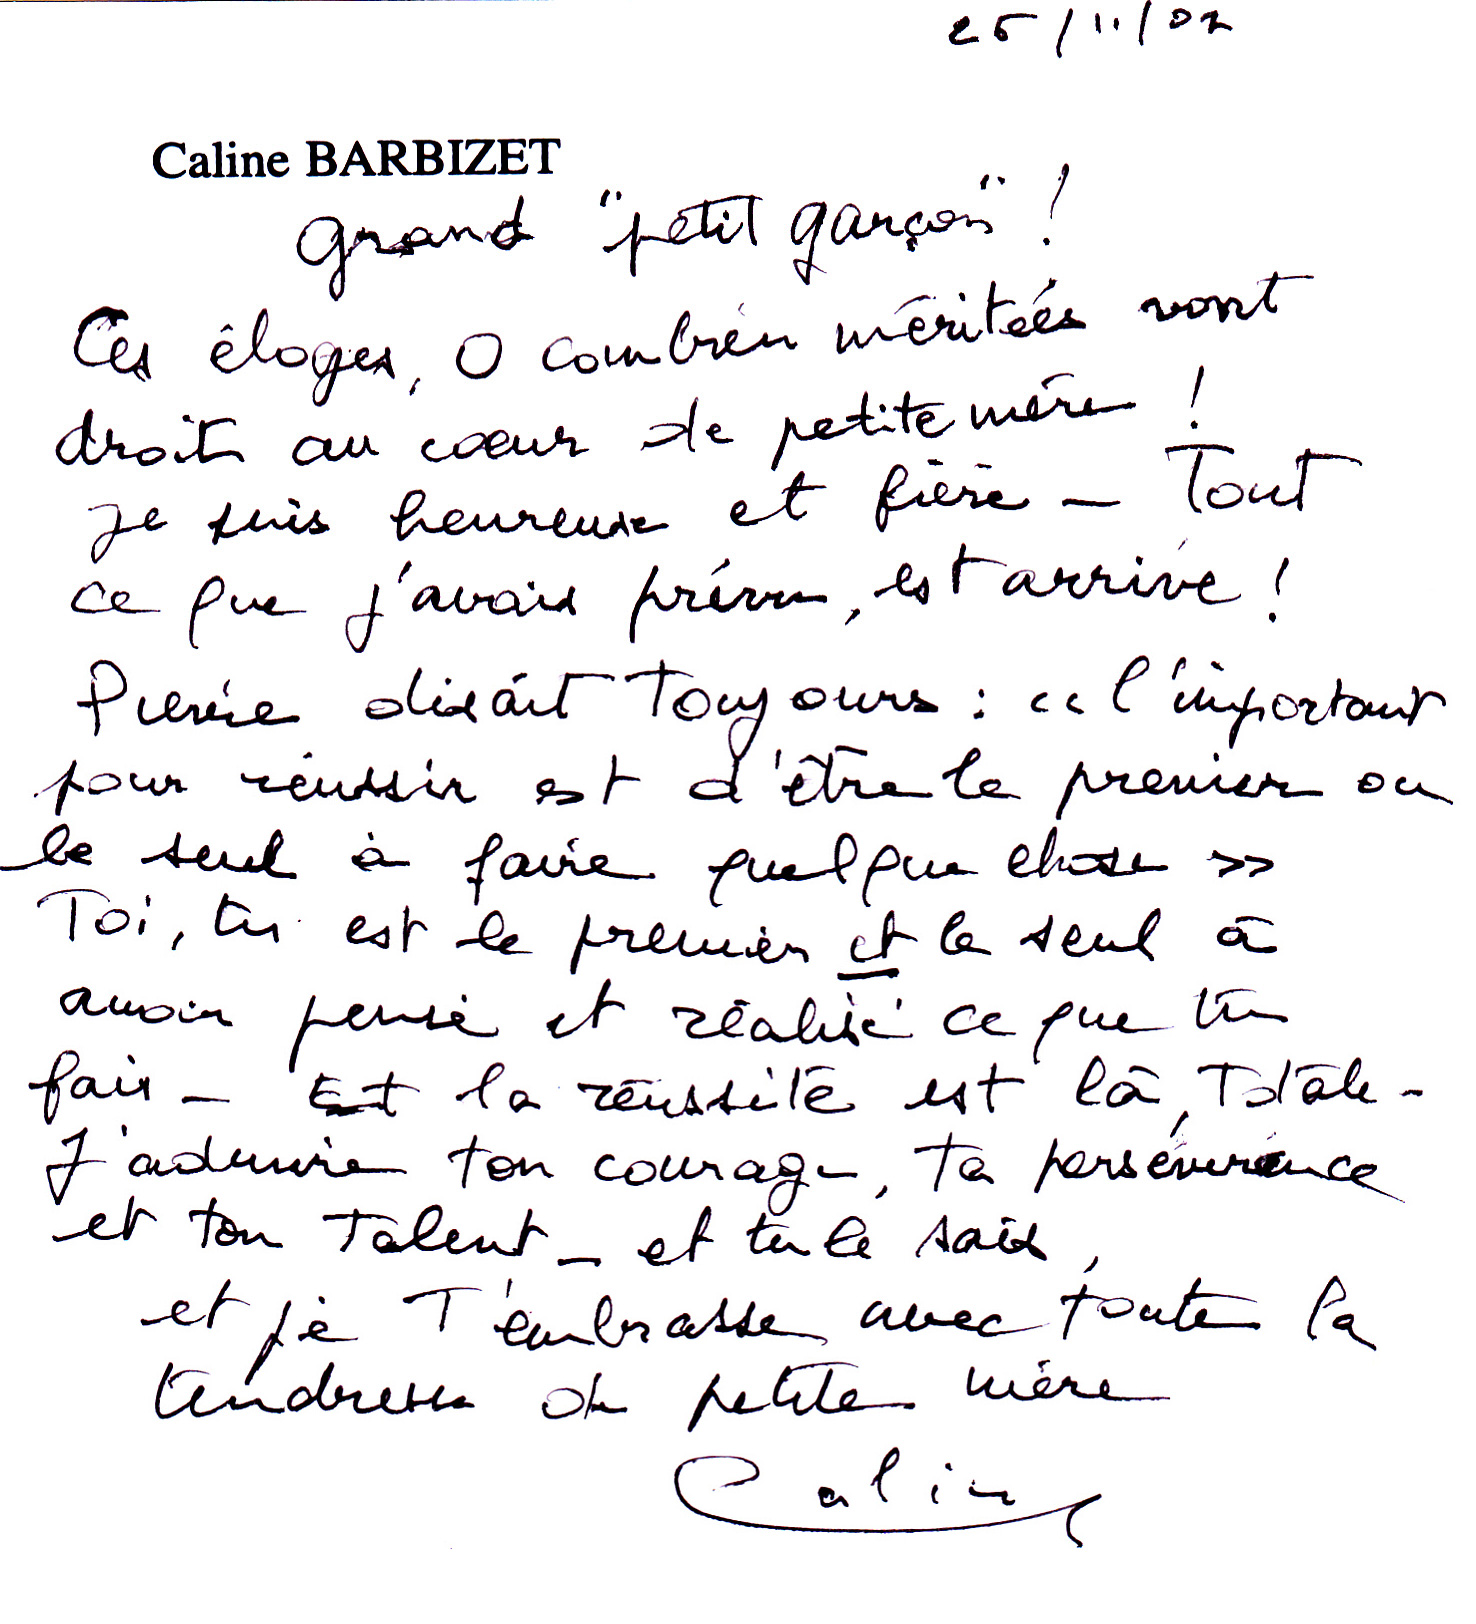 25/11/02
Caline BARBIZET
Grand "petit garçon" !
Ces éloges, O combien méritées vont
droit au cœur de petite mère !
Je suis heureuse et fière - Tout
ce que j'avais prévu, est arrivé !
Pierre disait Toujours : << l'important
pour réussir est d'être le premier ou
le seul à faire quelque chose >>
Toi, tu est le premier et le seul à
avoir pensé et réalisé ce que tu
fais - Et la réussite est là, Totale -
J'admire ton courage, ta persévérance
et ton Talent - et tu le sais,
et je T'embrasse avec toute la
tendresse de petite mère
Caline